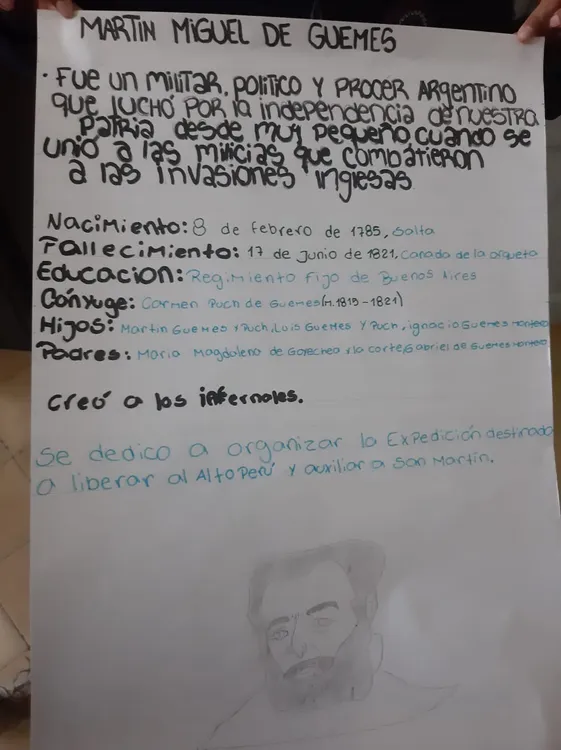 MARTIN MIGUEL DE GUEMES
· FUE UN MILITAR, POLITICO Y PROCER ARGENTINO
que LUCHÓ POR la independencia de nuestra
Patria desde muy pequeño cuando se
unió a las milicias que combatieron
a las Invasiones inglesas
Nacimiento: 8 de febrero de 1785, Salta
Fallecimiento: 17 de Junio de 1821, Canada de la orqueta
Educacion: Regimiento fijo de Buenos Aires
Cónyuge: Carmen Puch de Guemes (M.1815-1821)
Hijos: Martin Guemes y Puch, Luis Guemes y Puch, ignacio Guemes
Padres: Maria Magdalena de la corte, Gabriel de Guemes
Creó a los infernales.
Se dedico a organizar la Expedición destinada
a liberar al Alto Perú y auxiliar a San Martin.